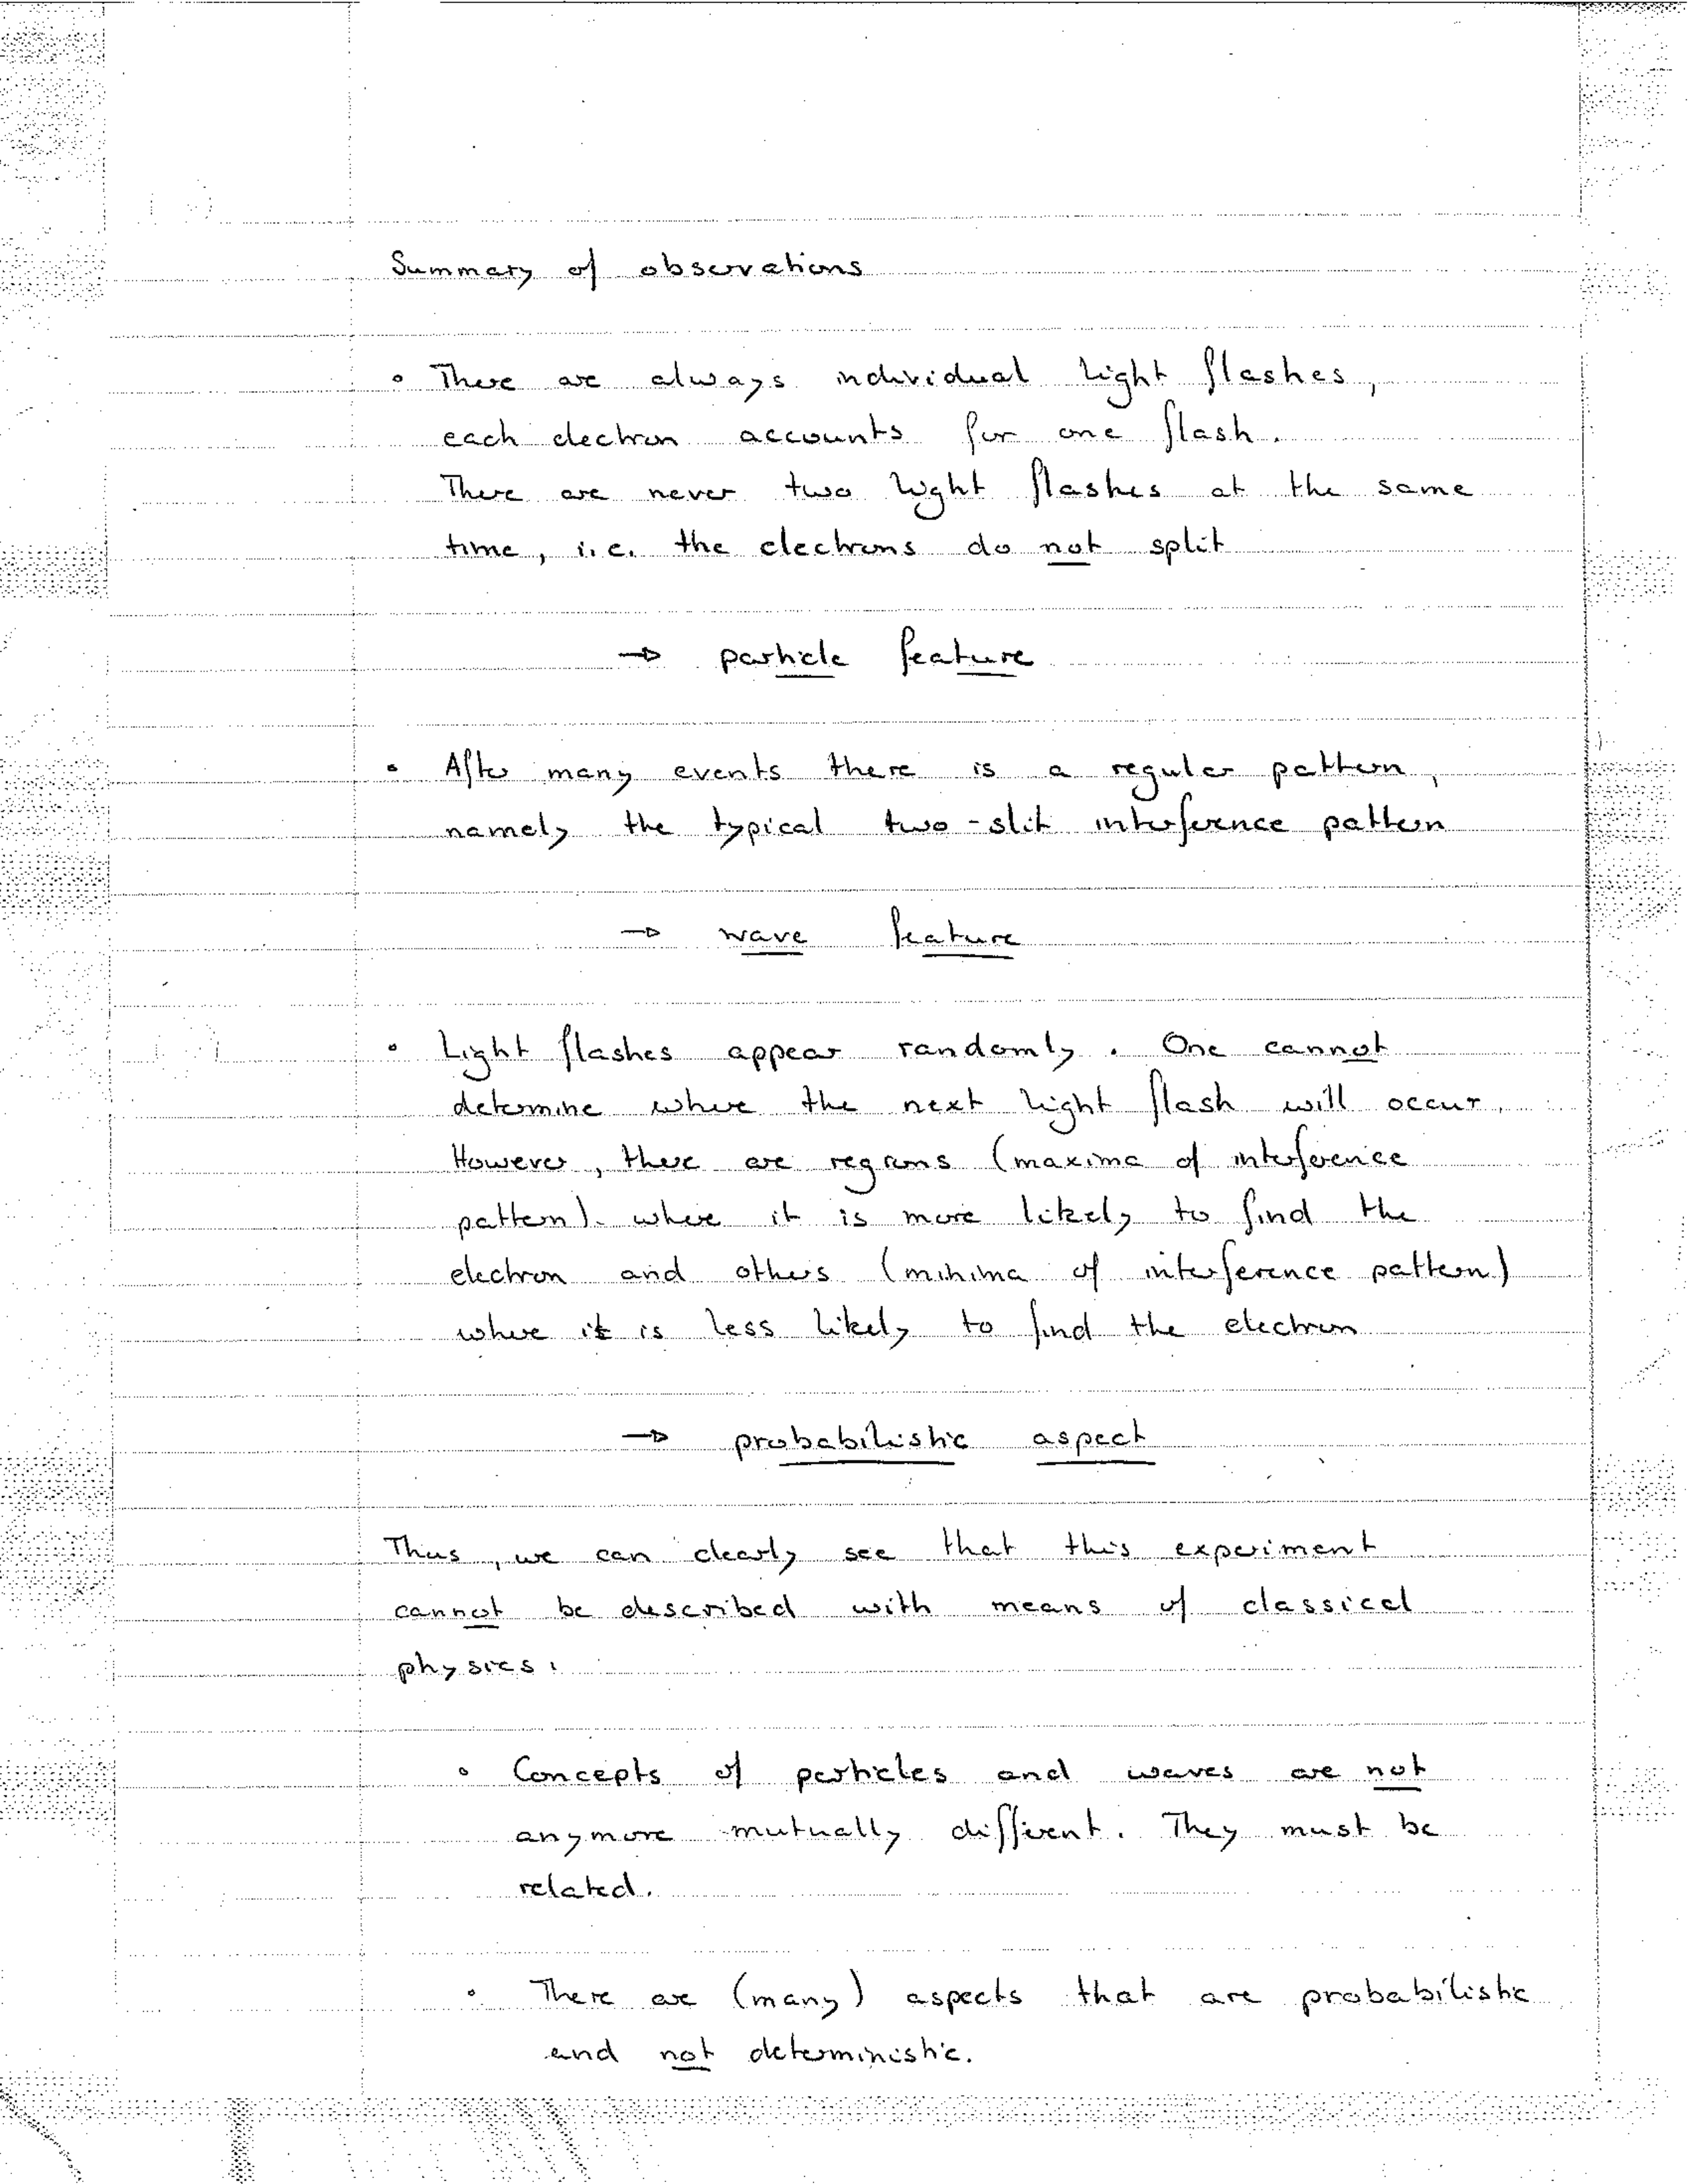 Summary of observations
• There are always individual light flashes,
each electron accounts for one flash.
There are never two light flashes at the same
time, i.e. the electrons do not split
→ particle feature
• After many events there is a regular pattern,
namely the typical two-slit interference pattern
→ wave feature
• Light flashes appear randomly. One cannot
determine where the next light flash will occur.
However, there are regions (maxima of interference
pattern) where it is more likely to find the
electron and others (minima of interference pattern)
where it is less likely to find the electron
→ probabilistic aspect
Thus, we can clearly see that this experiment
cannot be described with means of classical
physics:
• Concepts of particles and waves are not
anymore mutually different. They must be
related.
• There are (many) aspects that are probabilistic
and not deterministic.